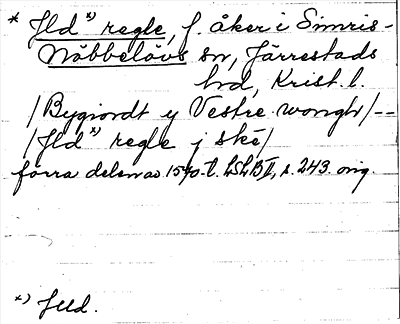 * Jld *) regle, f. åker i Simris-
Nöbbelövs sn, Järrestads
hd, Krist. l.
/Bygiordt y Vestre wongh/--
/Jld *) regle j ske/
förra delen av 1570-t. LSLB II, s. 243. orig.
*) Jeld.